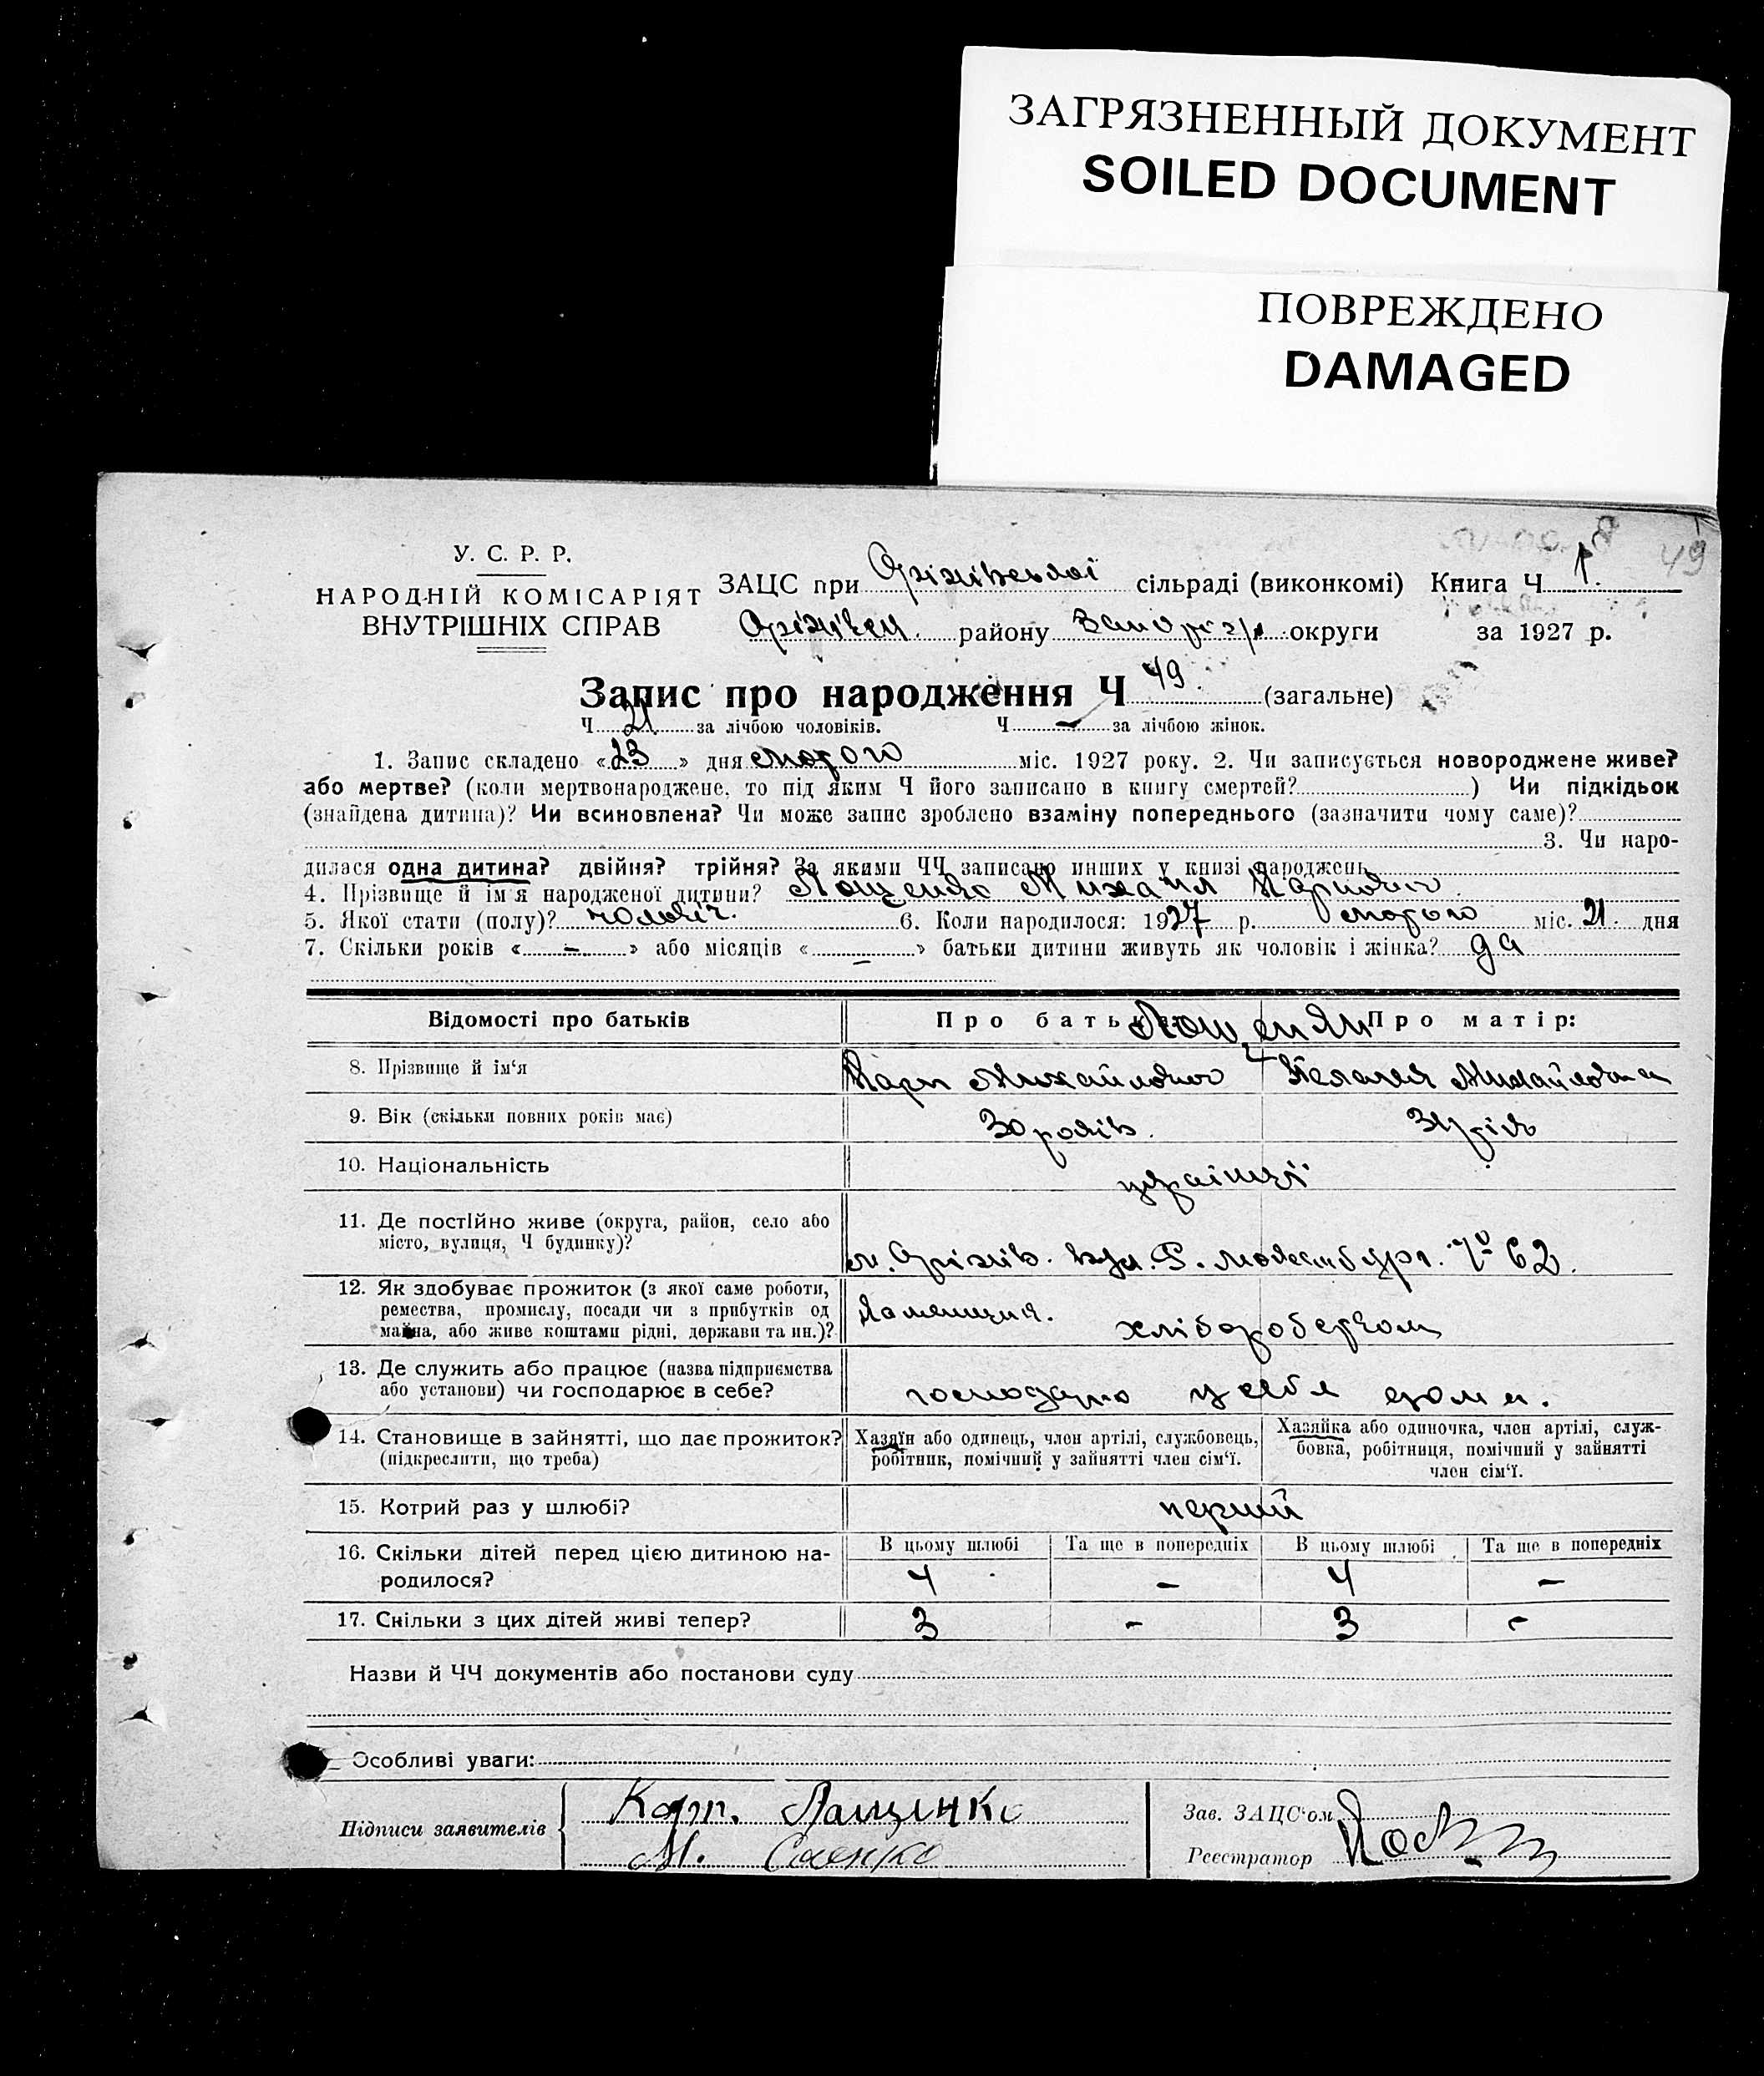 ЗАГРЯЗНЕННЫЙ ДОКУМЕНТ
SOILED DOCUMENT
ПОВРЕЖДЕНО
DAMAGED
49
У. С. Р. Р.
НАРОДНІЙ КОМІСАРІЯТ
ВНУТРІШНІХ СПРАВ
ЗАЦС при Оріхівській сільраді (виконкомі) Книга Ч 1.
Оріхівськ. району Запоріж. округи за 1927 р.
Запис про народження Ч 49. (загальне)
Ч 21 за лічбою чоловіків. Ч — за лічбою жінок.
1. Запис складено «23» дня лютого міс. 1927 року. 2. Чи записується новороджене живе?
або мертве? (коли мертвонароджене, то під яким Ч його записано в книгу смертей? ) Чи підкідьок
(знайдена дитина)? Чи всиновлена? Чи може запис зроблено взаміну попереднього (зазначити чому саме)?
3. Чи наро-
дилася одна дитина? двійня? трійня? За якими ЧЧ записано инших у книзі народжень
4. Прізвище й ім'я народженої дитини? Лощенко Михаил Карпович
5. Якої стати (полу)? чоловіч. 6. Коли народилося: 1927 р. лютого міс. 21. дня
7. Скільки років «—» або місяців «—» батьки дитини живуть як чоловік і жінка? да
Відомості про батьків
Про батька: Про матір:
8. Прізвище й ім'я
Карп Михайлович Пелагея Михайловна
9. Вік (скільки повних років має)
30 років. 34 рік
10. Національність
українці
11. Де постійно живе (округа, район, село або
місто, вулиця, Ч будинку)?
м. Оріхів. вул. Р. № 62.
12. Як здобуває прожиток (з якої саме роботи,
ремества, промислу, посади чи з прибутків од
майна, або живе коштами рідні, держави та ин.)?
хліборобством
13. Де служить або працює (назва підприємства
або установи) чи господарює в себе?
господарює у себе дома.
14. Становище в зайнятті, що дає прожиток?
(підкреслити, що треба)
Хазяїн або одинець, член артілі, службовець,
робітник, помічний у зайнятті член сім'ї.
Хазяйка або одиночка, член артілі, служ-
бовка, робітниця, помічний у зайнятті
член сім'ї.
15. Котрий раз у шлюбі?
перший
16. Скільки дітей перед цією дитиною на-
родилося?
В цьому шлюбі Та ще в попередніх В цьому шлюбі Та ще в попередніх
4 — 4 —
17. Скільки з цих дітей живі тепер?
3 - 3 -
Назви й ЧЧ документів або постанови суду
Особливі уваги:
Підписи заявителів
Карп. Лащенко
М. Саенко
Зав. ЗАЦС'ом
Реєстратор